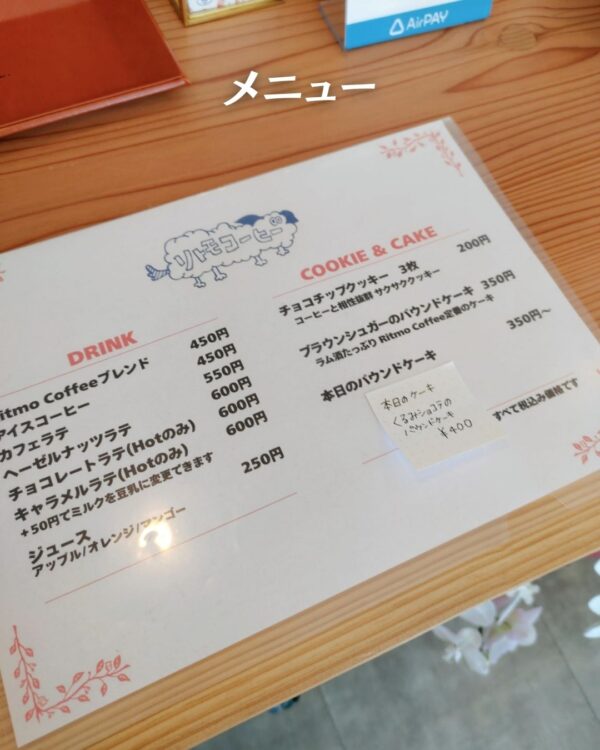 AirPAY
メニュー
リトモコーヒー
DRINK
Ritmo Coffeeブレンド 450円
アイスコーヒー 450円
カフェラテ 550円
ヘーゼルナッツラテ 600円
チョコレートラテ(Hotのみ) 600円
キャラメルラテ(Hotのみ) 600円
+50円でミルクを豆乳に変更できます
ジュース 250円
アップル/オレンジ/マンゴー
COOKIE & CAKE
チョコチップクッキー 3枚 200円
コーヒーと相性抜群 サクサククッキー
ブラウンシュガーのパウンドケーキ 350円
ラム酒たっぷり Ritmo Coffee定番のケーキ
本日のパウンドケーキ 350円～
本日のケーキ
くるみショコラの
パウンドケーキ
¥400
すべて税込み価格です